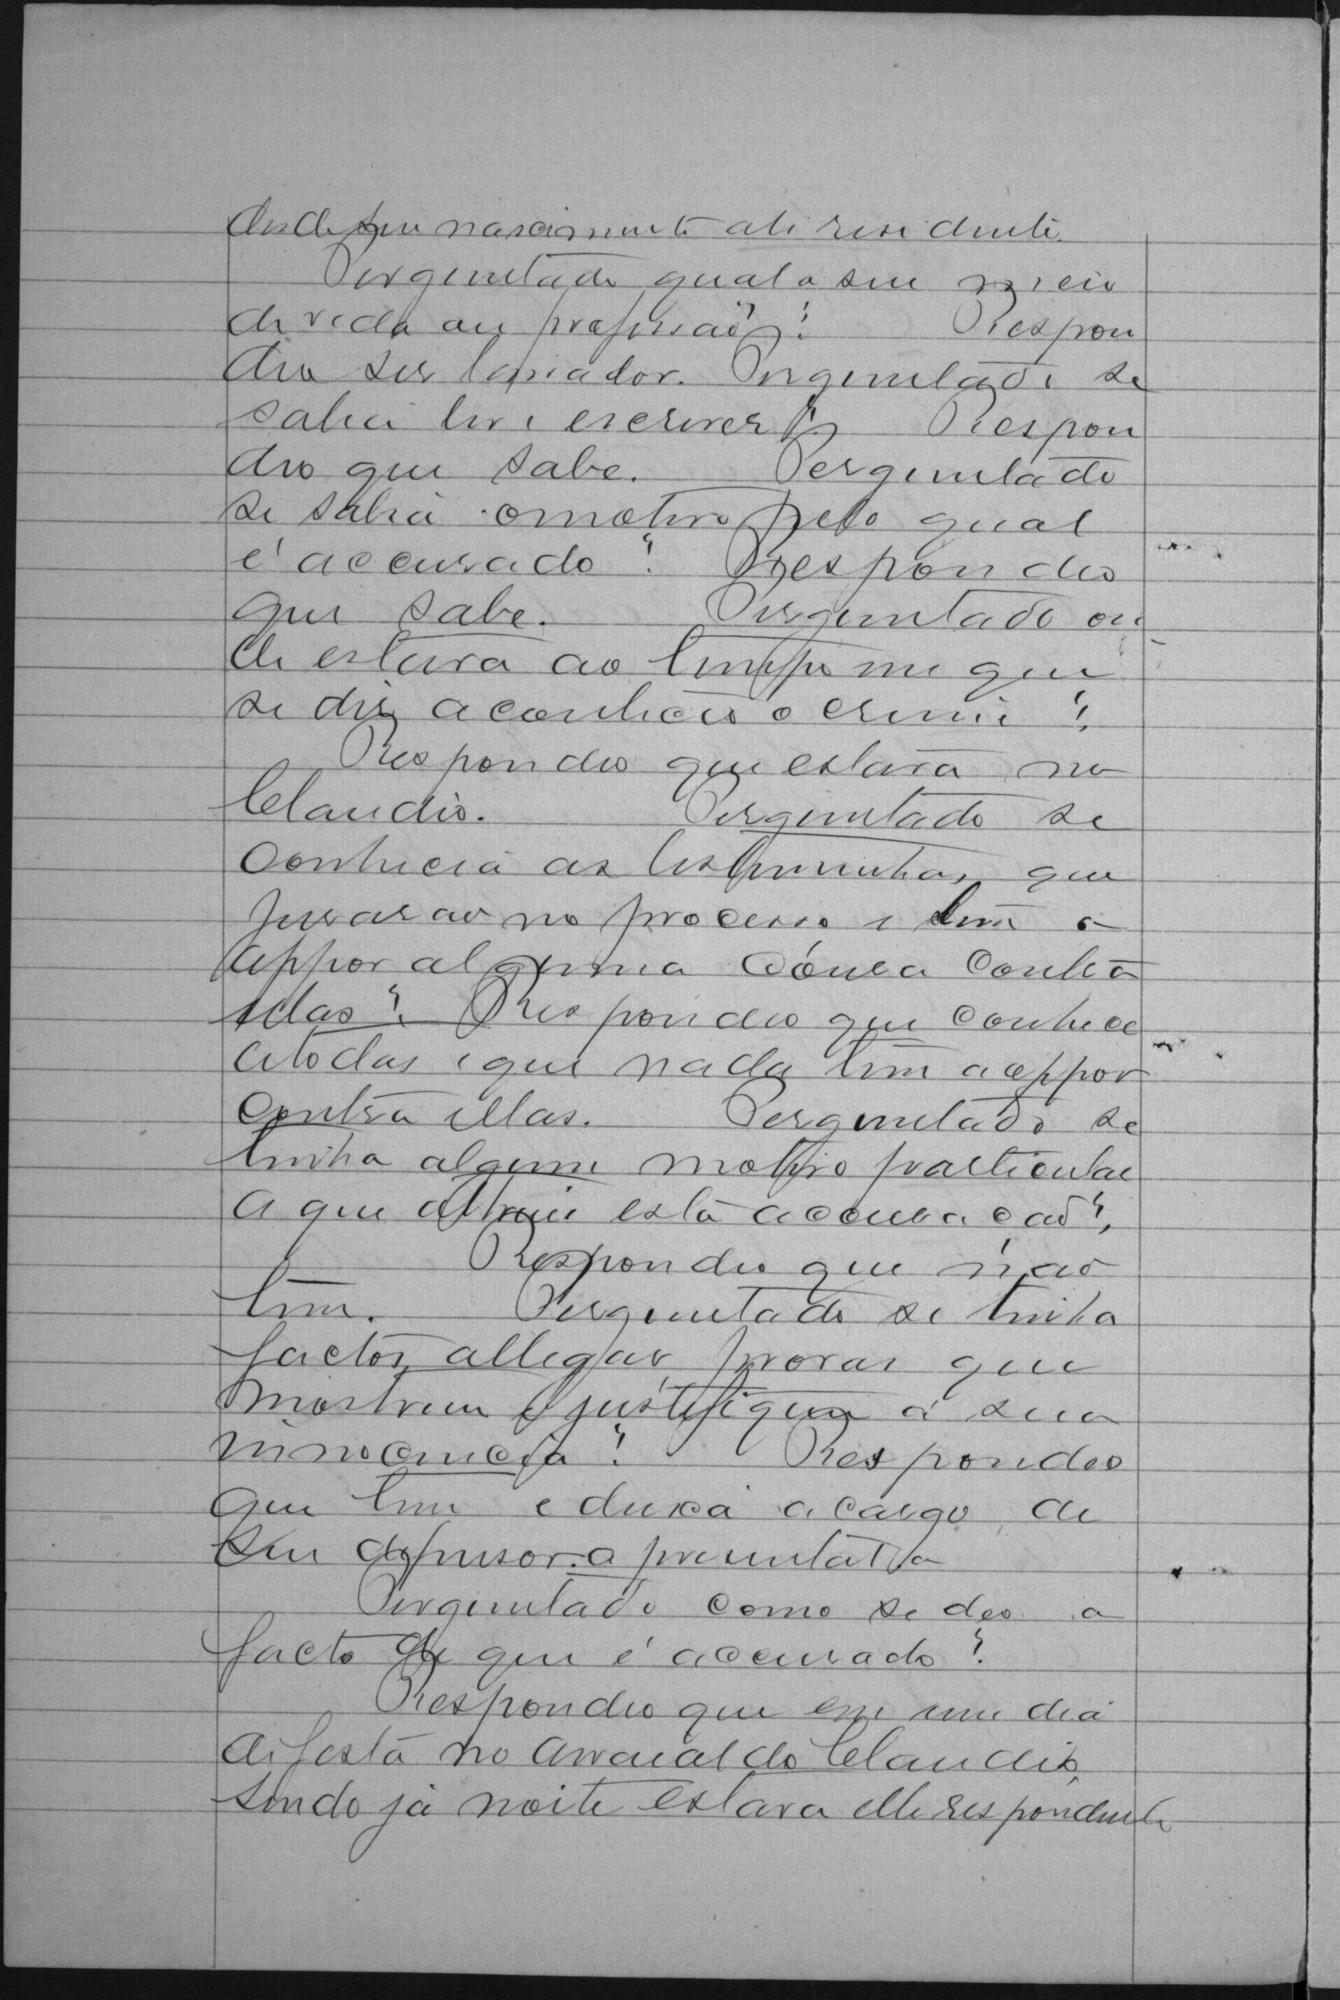 desde seu nascimento ali residente.
Perguntado qual o seu meio
de vida ou profissão?
Respon
deo ser lavrador. Perguntado se
sabia ler e escrever? Respon
deo que sabe. Perguntado
se sabia o motivo pelo qual
é accusado? Respondeo
que sabe. Perguntado on
de estava ao tempo em que
se diz aconteceo o crime?
Respondeo que estava no
Claudio. Perguntado se
conhecia as testemunhas que
jurarão no processo e tem a
oppor alguma cousa contra
ellas? Respondeo que conhece
a todas e que nada tem a oppor
contra ellas. Perguntado se
tinha algum motivo particular
a que attribui esta accusação?
Respondeo que não
tem. Perguntado se tinha
factos allegar, provas que
mostrem e justifiquem a sua
innocencia? Respondeo
que tem e deixa a cargo de
seu defensor apresental-a
Perguntado como se deo o
facto de que é accusado?
Respondeo que em um dia
de festa no arraial do Claudio,
sendo já noite estava elle respondente